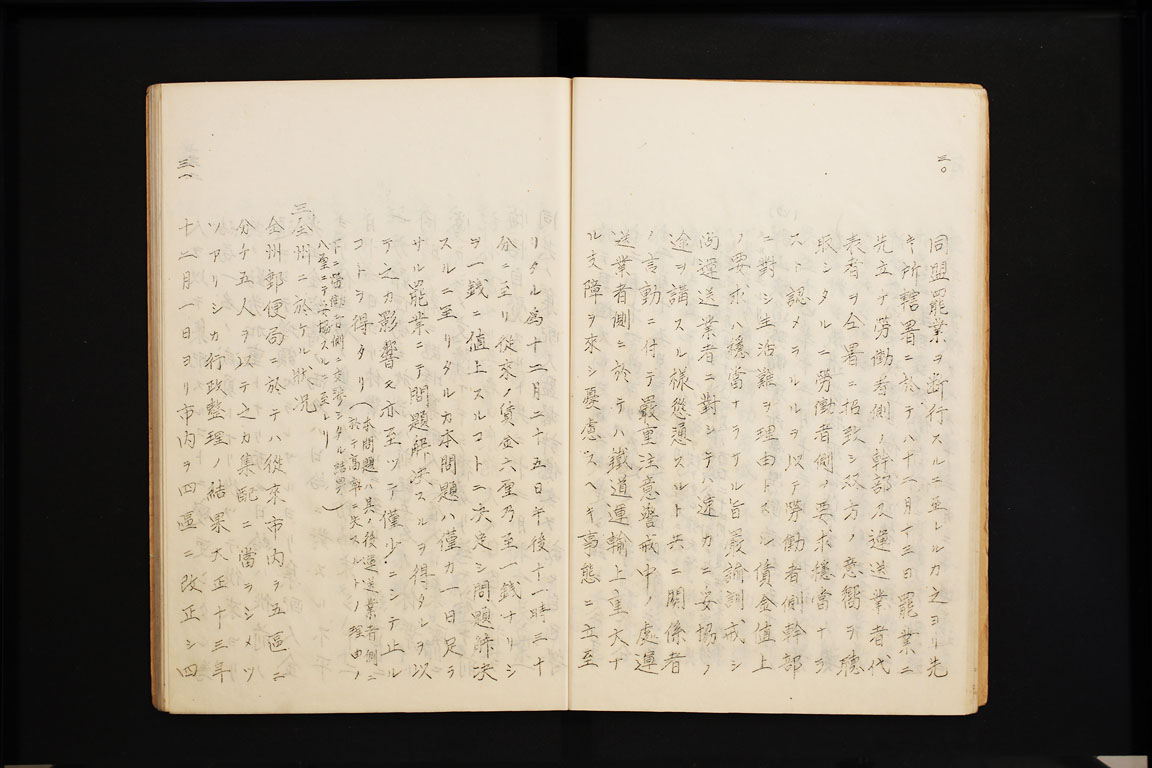 三〇
同盟罷業ヲ断行スルニ至レルカ之ヨリ先
キ所轄署ニ於テハ十二月十三日罷業ニ
先立チ労働者側ノ幹部及運送業者代
表者ヲ仝署ニ招致シ双方ノ意嚮ヲ聴
取シタルニ労働者側ノ要求穏當ナラ
スト認メラルルヲ以テ労働者側幹部
ニ對シ生活難ヲ理由トスル賃金値上
ノ要求ハ穏當ナラサル旨嚴諭訓戒シ
尚運送業者ニ對シテハ速カニ妥協ノ
途ヲ講スル様慫慂スルト共ニ関係者
ノ言動ニ付テ嚴重注意警戒中ノ處運
送業者側ニ於テハ鐵道運輸上重大ナ
ル支障ヲ來シ憂慮スヘキ事態ニ立至
三一
リタル為十二月二十五日午後十一時三十
分ニ至リ従來ノ賃金六厘乃至一銭ナリシ
ヲ一銭ニ値上スルコトニ決定シ問題解決
スルニ至リタルカ本問題ハ僅カ一日足ラ
サル罷業ニテ問題解決スルヲ得タルヲ以
テ之カ影響モ亦至ツテ僅少ニシテ止ル
コトヲ得タリ(本問題ハ其ノ後運送業者側ニ
於テ高率ニ失スルトノ理由ノ
下ニ労働者側ニ交渉シタル結果
八厘ニテ妥協スルニ至レリ)
三、全州ニ於ケル状況
全州郵便局ニ於テハ従來市内ヲ五區ニ
分チ五人ヲ以テ之カ集配ニ當ラシメツ
ツアリシカ行政整理ノ結果大正十三年
十二月一日ヨリ市内ヲ四區ニ改正シ四